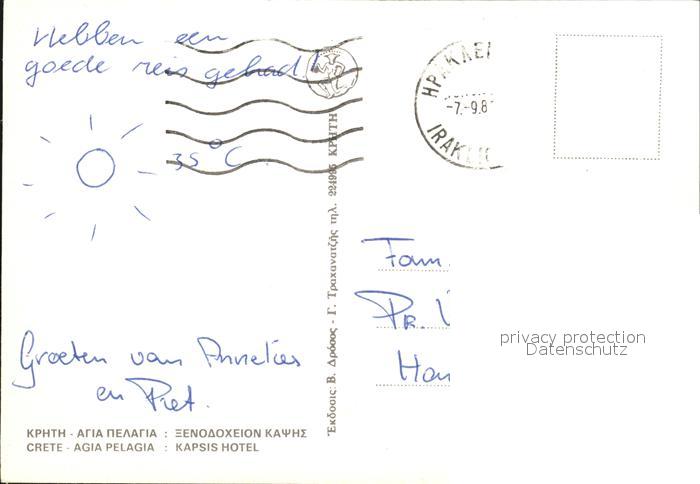 Hebben een
goede reis gehad!
35°C
Groeten van Annelies
en Piet.
ΚΡΗΤΗ - ΑΓΙΑ ΠΕΛΑΓΙΑ : ΞΕΝΟΔΟΧΕΙΟΝ ΚΑΨΗΣ
CRETE - AGIA PELAGIA : KAPSIS HOTEL
Ἐκδοσις: Β. Δρόσος - Γ. Τραχανατζῆς τηλ. 224995 ΚΡΗΤΗ
ΗΡΑΚΛΕΙ
-7.-9.8
IRAKLI
Fam.
Pr.
Han
privacy protection
Datenschutz